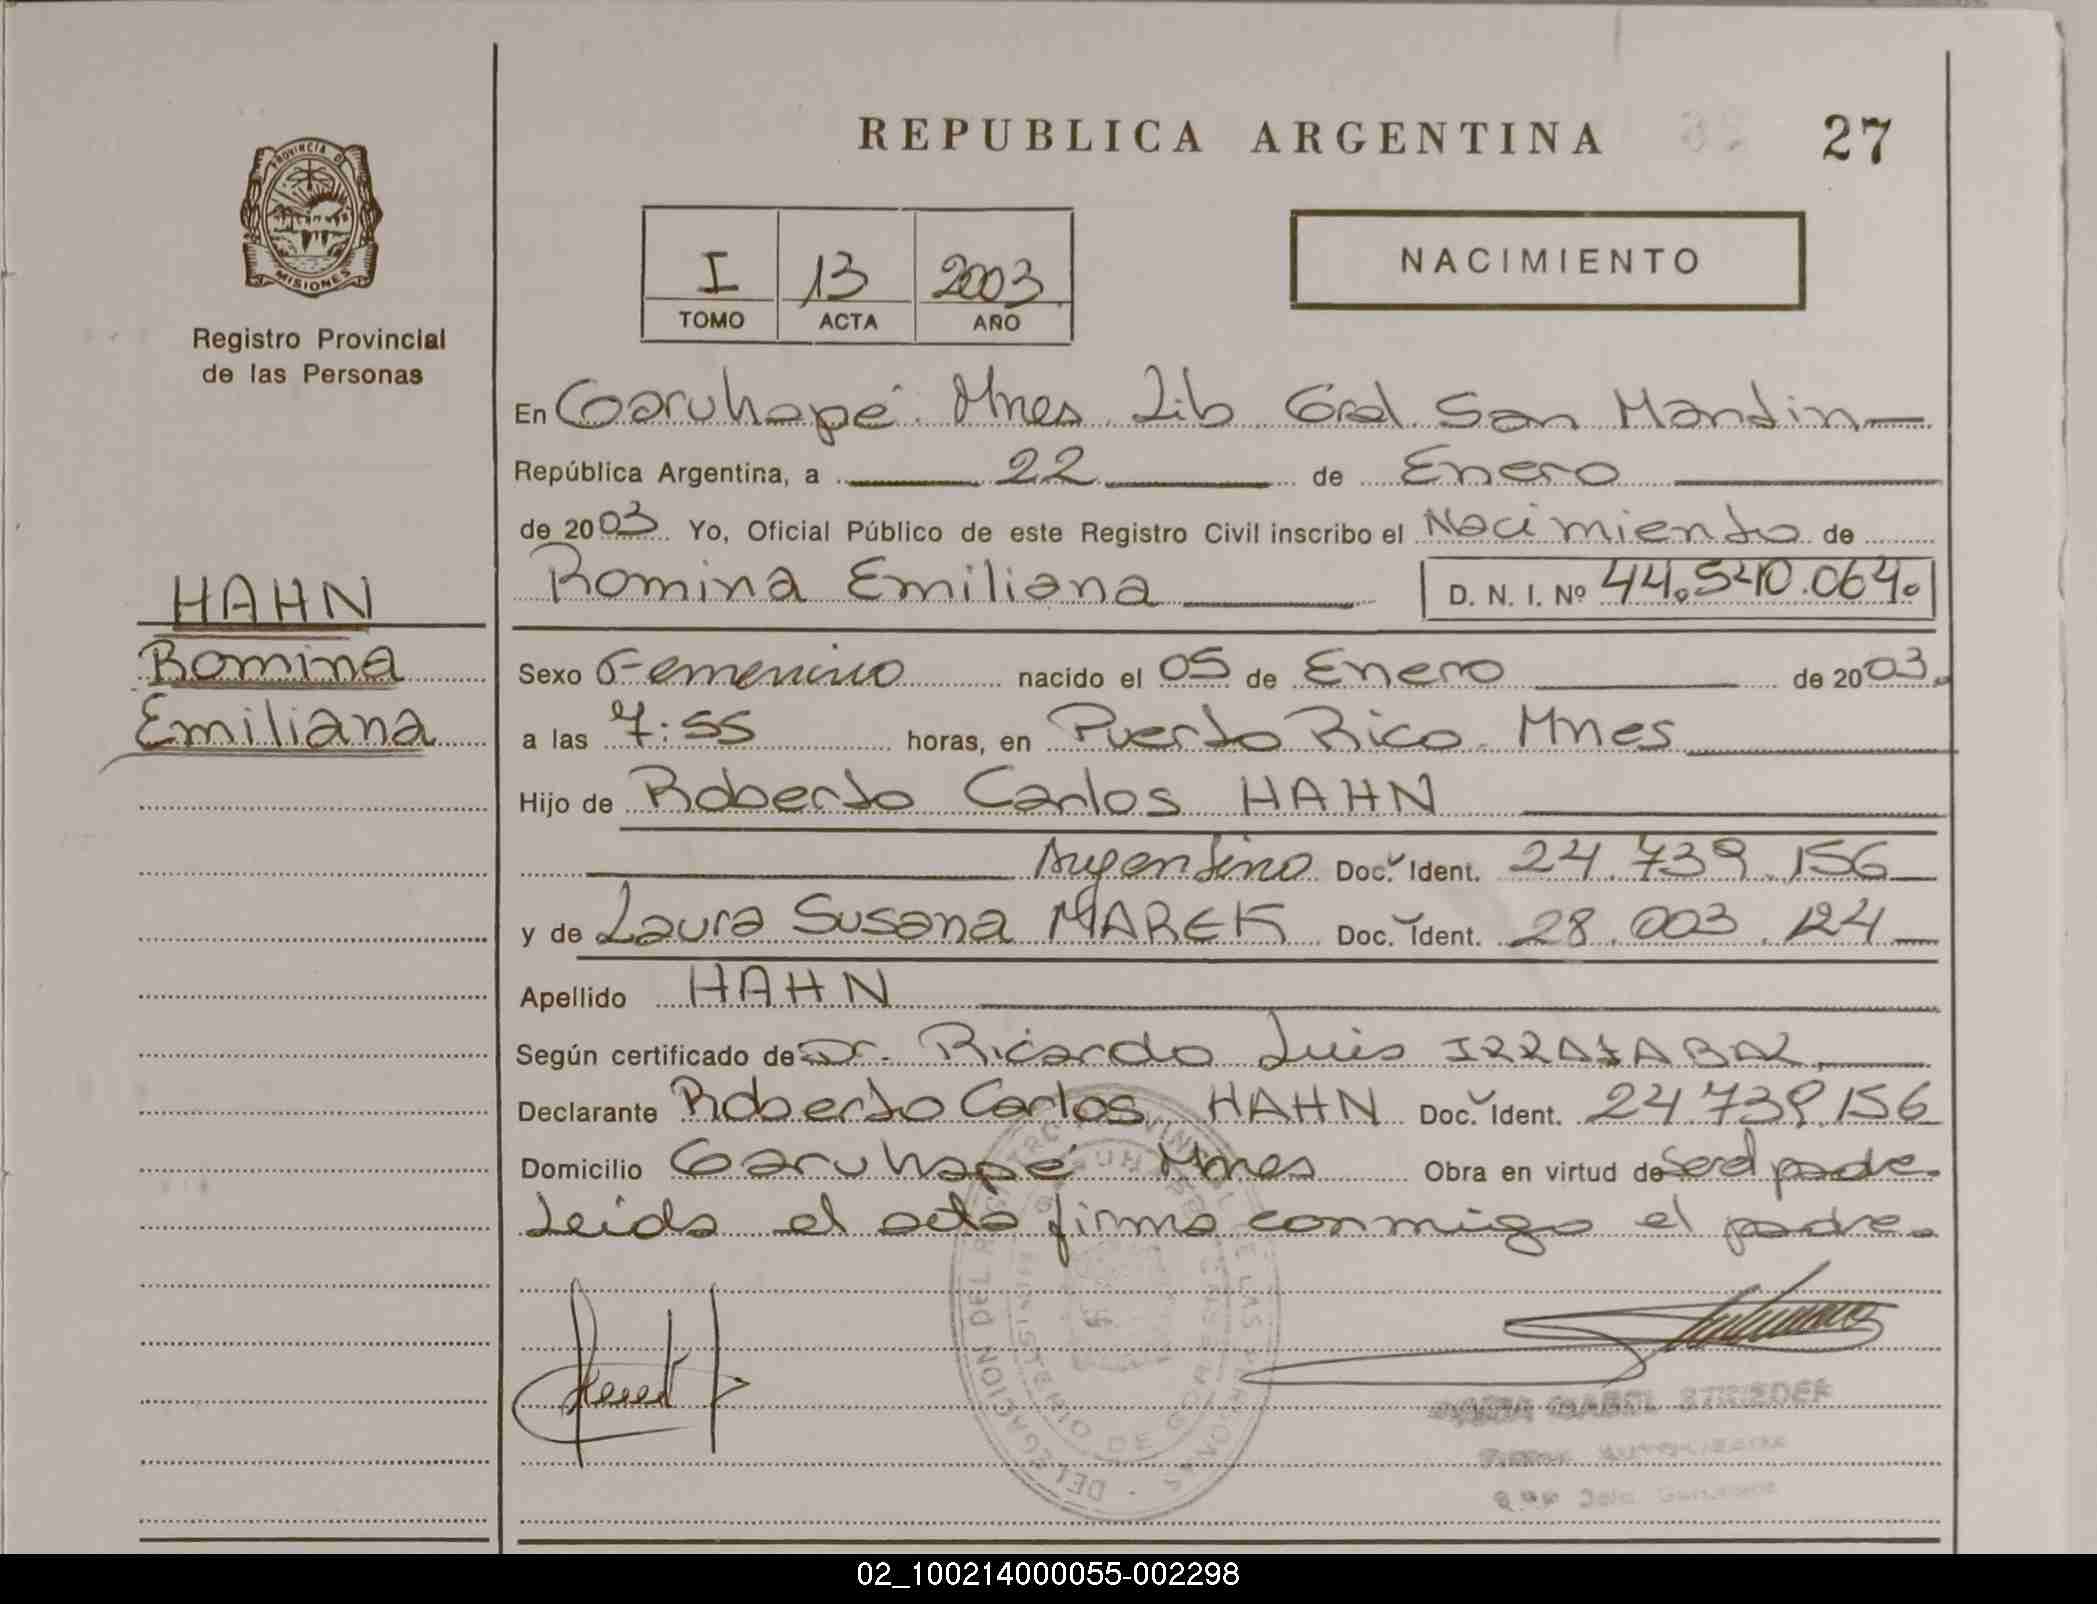 REPUBLICA ARGENTINA
27
PROVINCIA DE
MISIONES
Registro Provincial
de las Personas
I 13 2003
TOMO ACTA AÑO
NACIMIENTO
En Garuhapé Mnes Lib Gral San Martin
República Argentina, a 22 de Enero
de 2003 Yo, Oficial Público de este Registro Civil inscribo el Nacimiento de
Romina Emiliana D. N. I. Nº 44.540.064.
HAHN
Romina
Emiliana
Sexo Femenino nacido el 05 de Enero de 2003.
a las 7:55 horas, en Puerto Rico. Mnes
Hijo de Roberto Carlos HAHN
Argentino Doc. Ident. 24.739.156
y de Laura Susana MAREK Doc. Ident. 28.003.124
Apellido HAHN
Según certificado de Dr. Ricardo Luis IRRAZABAL
Declarante Roberto Carlos HAHN Doc. Ident. 24.739.156
Domicilio Garuhapé Mnes Obra en virtud de Ser el padre.
Leida el acta firma conmigo el padre.
DELEGACION DEL REGISTRO PROVINCIAL DE LAS PERSONAS
MINISTERIO DE GOBIERNO
STRIEDER
02_100214000055-002298